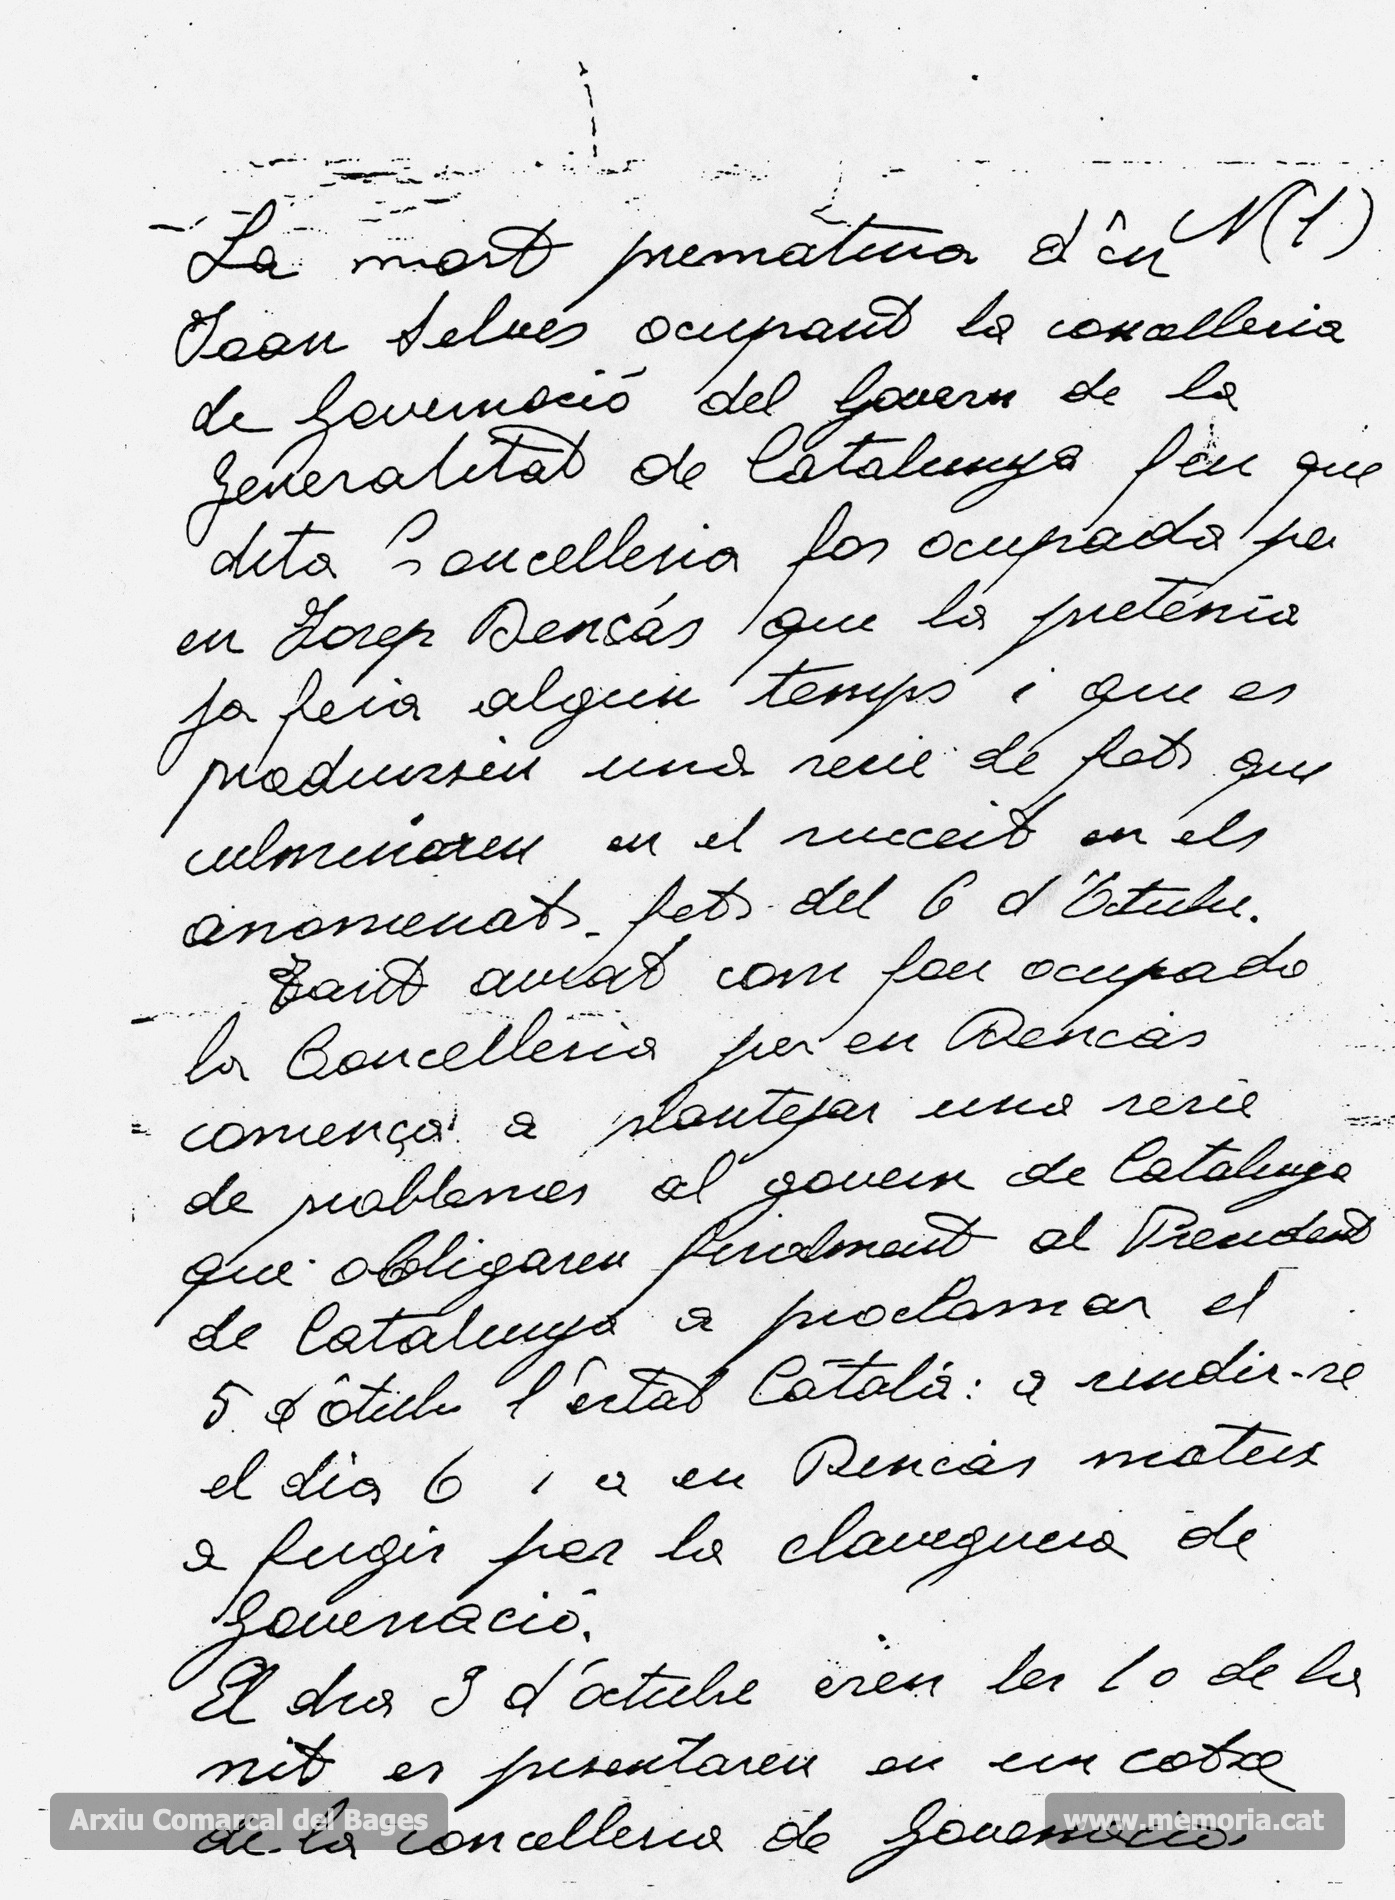 N(1)
La mort prematura d'en
Joan Selves ocupant la concelleria
de Governació del Govern de la
Generalitat de Catalunya feu que
dita Concelleria fos ocupada per
en Josep Dencás que la pretenia
ja feia algun temps i que es
produissin una serie de fets que
culminaren en el succeit en els
anomenats fets del 6 d'Octubre.
Tant aviat com fou ocupada
la Concelleria per en Dencás
començá a plantejar una serie
de problemes al govern de Catalunya
que obligaren finalment al President
de Catalunya a proclamar el
5 d'Octubre l'estat Català: a rendir-se
el dia 6 i a en Dencás mateix
a fugir per la claveguera de
Governació.
El dia 3 d'Octubre eren les 10 de la
nit es presentaren en un cotxe
de la concelleria de Governació
Arxiu Comarcal del Bages
www.memoria.cat